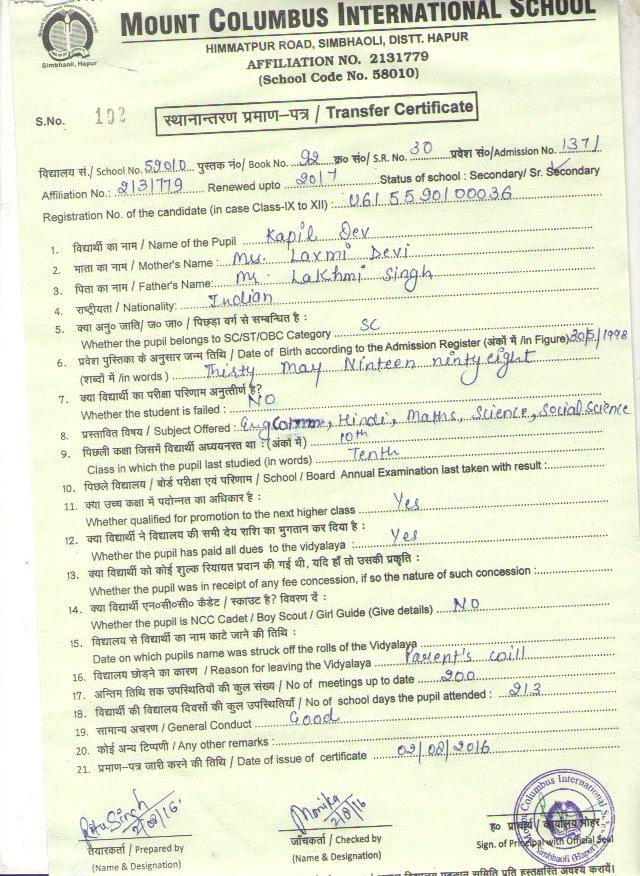 MOUNT COLUMBUS INTERNATIONAL SCHOOL
HIMMATPUR ROAD, SIMBHAOLI, DISTT. HAPUR
AFFILIATION NO. 2131779
(School Code No. 58010)
Simbhaoli, Hapur
S.No. 102
स्थानान्तरण प्रमाण–पत्र / Transfer Certificate
विद्यालय सं./ School No. 59010 पुस्तक नं०/ Book No. 92 क्र० सं०/ S.R. No. 30 प्रवेश सं०/Admission No. 1371
Affiliation No.: 2131779 Renewed upto 2017 Status of school : Secondary/ Sr. Secondary
Registration No. of the candidate (in case Class-IX to XII) : U61 5590100036
1. विद्यार्थी का नाम / Name of the Pupil Kapil Dev
2. माता का नाम / Mother's Name : Mrs. Laxmi Devi
3. पिता का नाम / Father's Name: Mr. Lakhmi Singh
4. राष्ट्रीयता / Nationality: Indian
5. क्या अनु० जाति/ ज० जा० / पिछड़ा वर्ग से सम्बन्धित है :
Whether the pupil belongs to SC/ST/OBC Category SC
6. प्रवेश पुस्तिका के अनुसार जन्म तिथि / Date of Birth according to the Admission Register (अंकों में /in Figure) 30/5/1998
(शब्दों में /in words) Thirsty May Ninteen ninty eight
7. क्या विद्यार्थी का परीक्षा परिणाम अनुत्तीर्ण है?
Whether the student is failed : NO
8. प्रस्तावित विषय / Subject Offered : Hindi, Maths, Science, Social Science
9. पिछली कक्षा जिसमें विद्यार्थी अध्ययनरत था : (अंकों में) 10th
Class in which the pupil last studied (in words) Tenth
10. पिछले विद्यालय / बोर्ड परीक्षा एवं परिणाम / School / Board Annual Examination last taken with result :
11. क्या उच्च कक्षा में पदोन्नत का अधिकार है :
Whether qualified for promotion to the next higher class Yes
12. क्या विद्यार्थी ने विद्यालय की सभी देय राशि का भुगतान कर दिया है :
Whether the pupil has paid all dues to the vidyalaya : Yes
13. क्या विद्यार्थी को कोई शुल्क रियायत प्रदान की गई थी, यदि हाँ तो उसकी प्रकृति :
Whether the pupil was in receipt of any fee concession, if so the nature of such concession :
14. क्या विद्यार्थी एन०सी०सी० कैडेट / स्काउट है? विवरण दें :
Whether the pupil is NCC Cadet / Boy Scout / Girl Guide (Give details) NO
15. विद्यालय से विद्यार्थी का नाम काटे जाने की तिथि :
Date on which pupils name was struck off the rolls of the Vidyalaya
16. विद्यालय छोड़ने का कारण / Reason for leaving the Vidyalaya Parent's will
17. अन्तिम तिथि तक उपस्थितियों की कुल संख्या / No of meetings up to date 200
18. विद्यार्थी की विद्यालय दिवसों की कुल उपस्थितियाँ / No of school days the pupil attended : 213
19. सामान्य अचरण / General Conduct Good
20. कोई अन्य टिप्पणी / Any other remarks :
21. प्रमाण–पत्र जारी करने की तिथि / Date of issue of certificate 02/08/2016
Ritu Singh
2/08/16.
तैयारकर्ता / Prepared by
(Name & Designation)
Monika
2/8/16
जाँचकर्ता / Checked by
(Name & Designation)
ह० प्राचार्य / कार्यालय मोहर
Sign. of Principal with Official Seal
Mount Columbus International School
Simbhaoli (Hapur)
हस्तक्षरित अवश्य करायें।